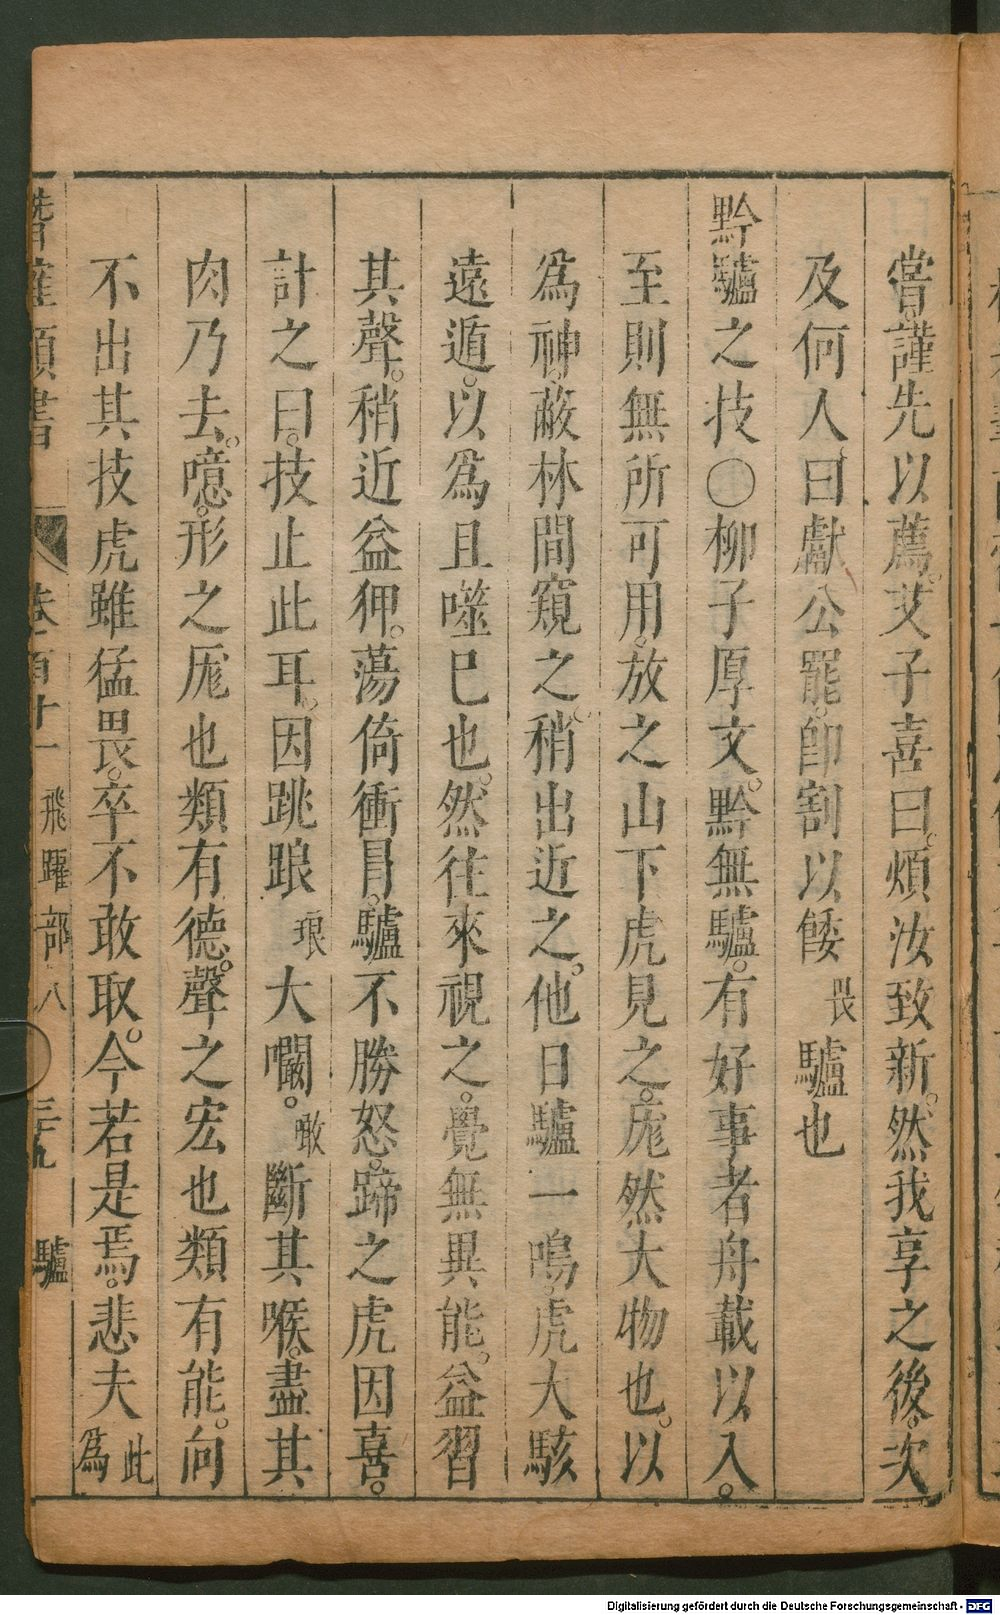 嘗謹先以薦。艾子喜曰。煩汝致新。然我享之後。次
及何人曰獻公罷。卽割以餧畏驢也
黔驢之技○柳子厚文。黔無驢。有好事者舟載以入。
至則無所可用。放之山下虎見之。厖然大物也。以
爲神。蔽林間窺之。稍出近之。他日驢一鳴。虎大駭
遠遁。以爲且噬巳也。然往來視之。覺無異能。益習
其聲。稍近益狎。蕩倚衝冐。驢不勝怒。蹄之虎因喜。
計之曰。技止此耳。因跳踉琅大㘚。噉斷其喉。盡其
肉乃去。噫。形之厖也類有德。聲之宏也類有能。向
不出其技虎雖猛畏。卒不敢取。今若是焉。悲夫此爲
潛確類書 卷一百十一 飛躍部八 三九 驢
Digitalisierung gefördert durch die Deutsche Forschungsgemeinschaft - DFG